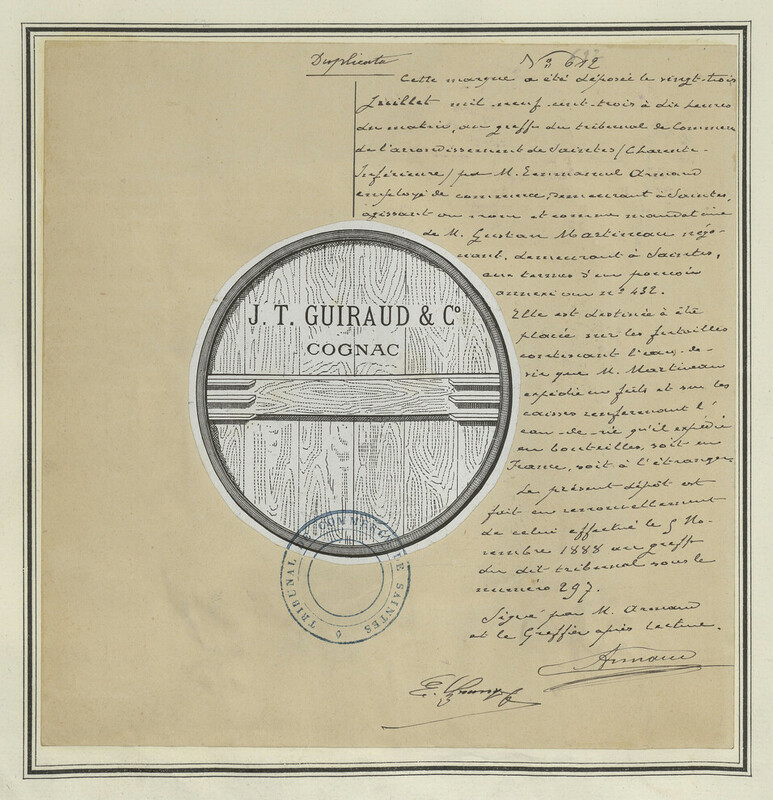 Duplicata
No 612
Cette marque a été déposée le vingt-trois
Juillet mil neuf cent trois à dix heures
du matin, au greffe du tribunal de Commerce
de l'arrondissement de Saintes (Charente-
Inférieure) par M. Emmanuel Armand
employé de commerce, demeurant à Saintes,
agissant au nom et comme mandataire
de M. Gustave Martineau négo-
ciant, demeurant à Saintes,
aux termes d'un pouvoir
annexé au no 432.
Elle est destinée à être
placée sur les futailles
contenant l'eau-de-
vie que M. Martineau
expédie en fûts et sur les
caisses renfermant l'
eau-de-vie qu'il expédie
en bouteilles, soit en
France, soit à l'étranger.
Le présent dépôt est
fait en renouvellement
de celui effectué le 5 No-
vembre 1888 au greffe
du dit tribunal sous le
numéro 297.
Signé par M. Armand
et le Greffier après lecture.
Armand
E.
J. T. GUIRAUD & Co
COGNAC
TRIBUNAL DE COMMERCE DE SAINTES